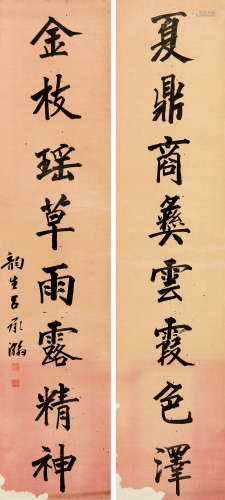 夏鼎商彝雲霞色澤
金枝瑤草雨露精神
韵生呂承瀚